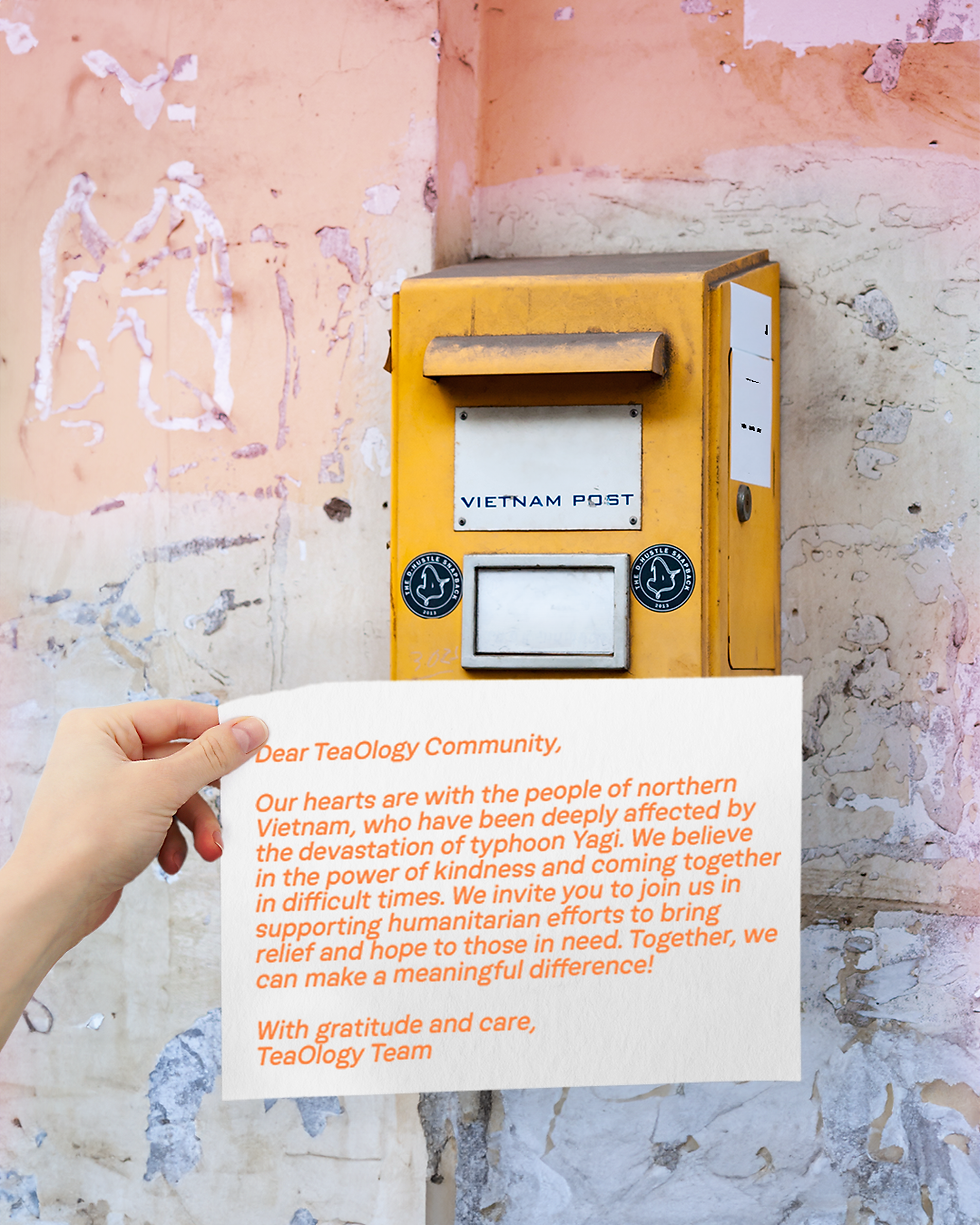 VIETNAM POST
THE D.HUSTLE SNAPBACK
2013
THE D.HUSTLE SNAPBACK
2013
Dear TeaOlogy Community,
Our hearts are with the people of northern
Vietnam, who have been deeply affected by
the devastation of typhoon Yagi. We believe
in the power of kindness and coming together
in difficult times. We invite you to join us in
supporting humanitarian efforts to bring
relief and hope to those in need. Together, we
can make a meaningful difference!
With gratitude and care,
TeaOlogy Team